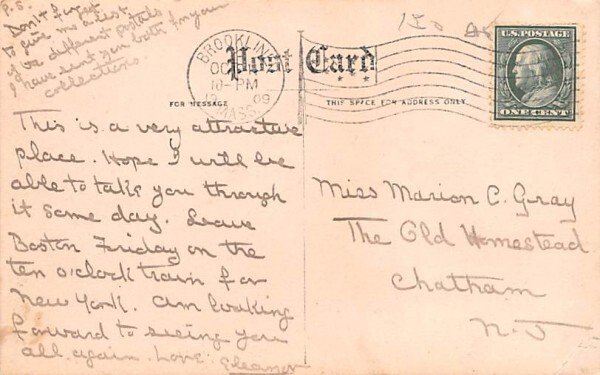 P.S.
Don't forget
to give me a list
of the different postals
I have sent you both for your
collections.
BROOKLINE
OCT
10-PM
12 09
MASS.
Post Card
FOR MESSAGE
THIS SPACE FOR ADDRESS ONLY.
U.S. POSTAGE
ONE CENT
This is a very attractive
place. Hope I will be
able to take you through
it some day. Leave
Boston Friday on the
ten o'clock train for
New York. Am looking
forward to seeing you
all again. Love. Eleanor
Miss Marion C. Gray
The Old Homestead
Chatham
N. J